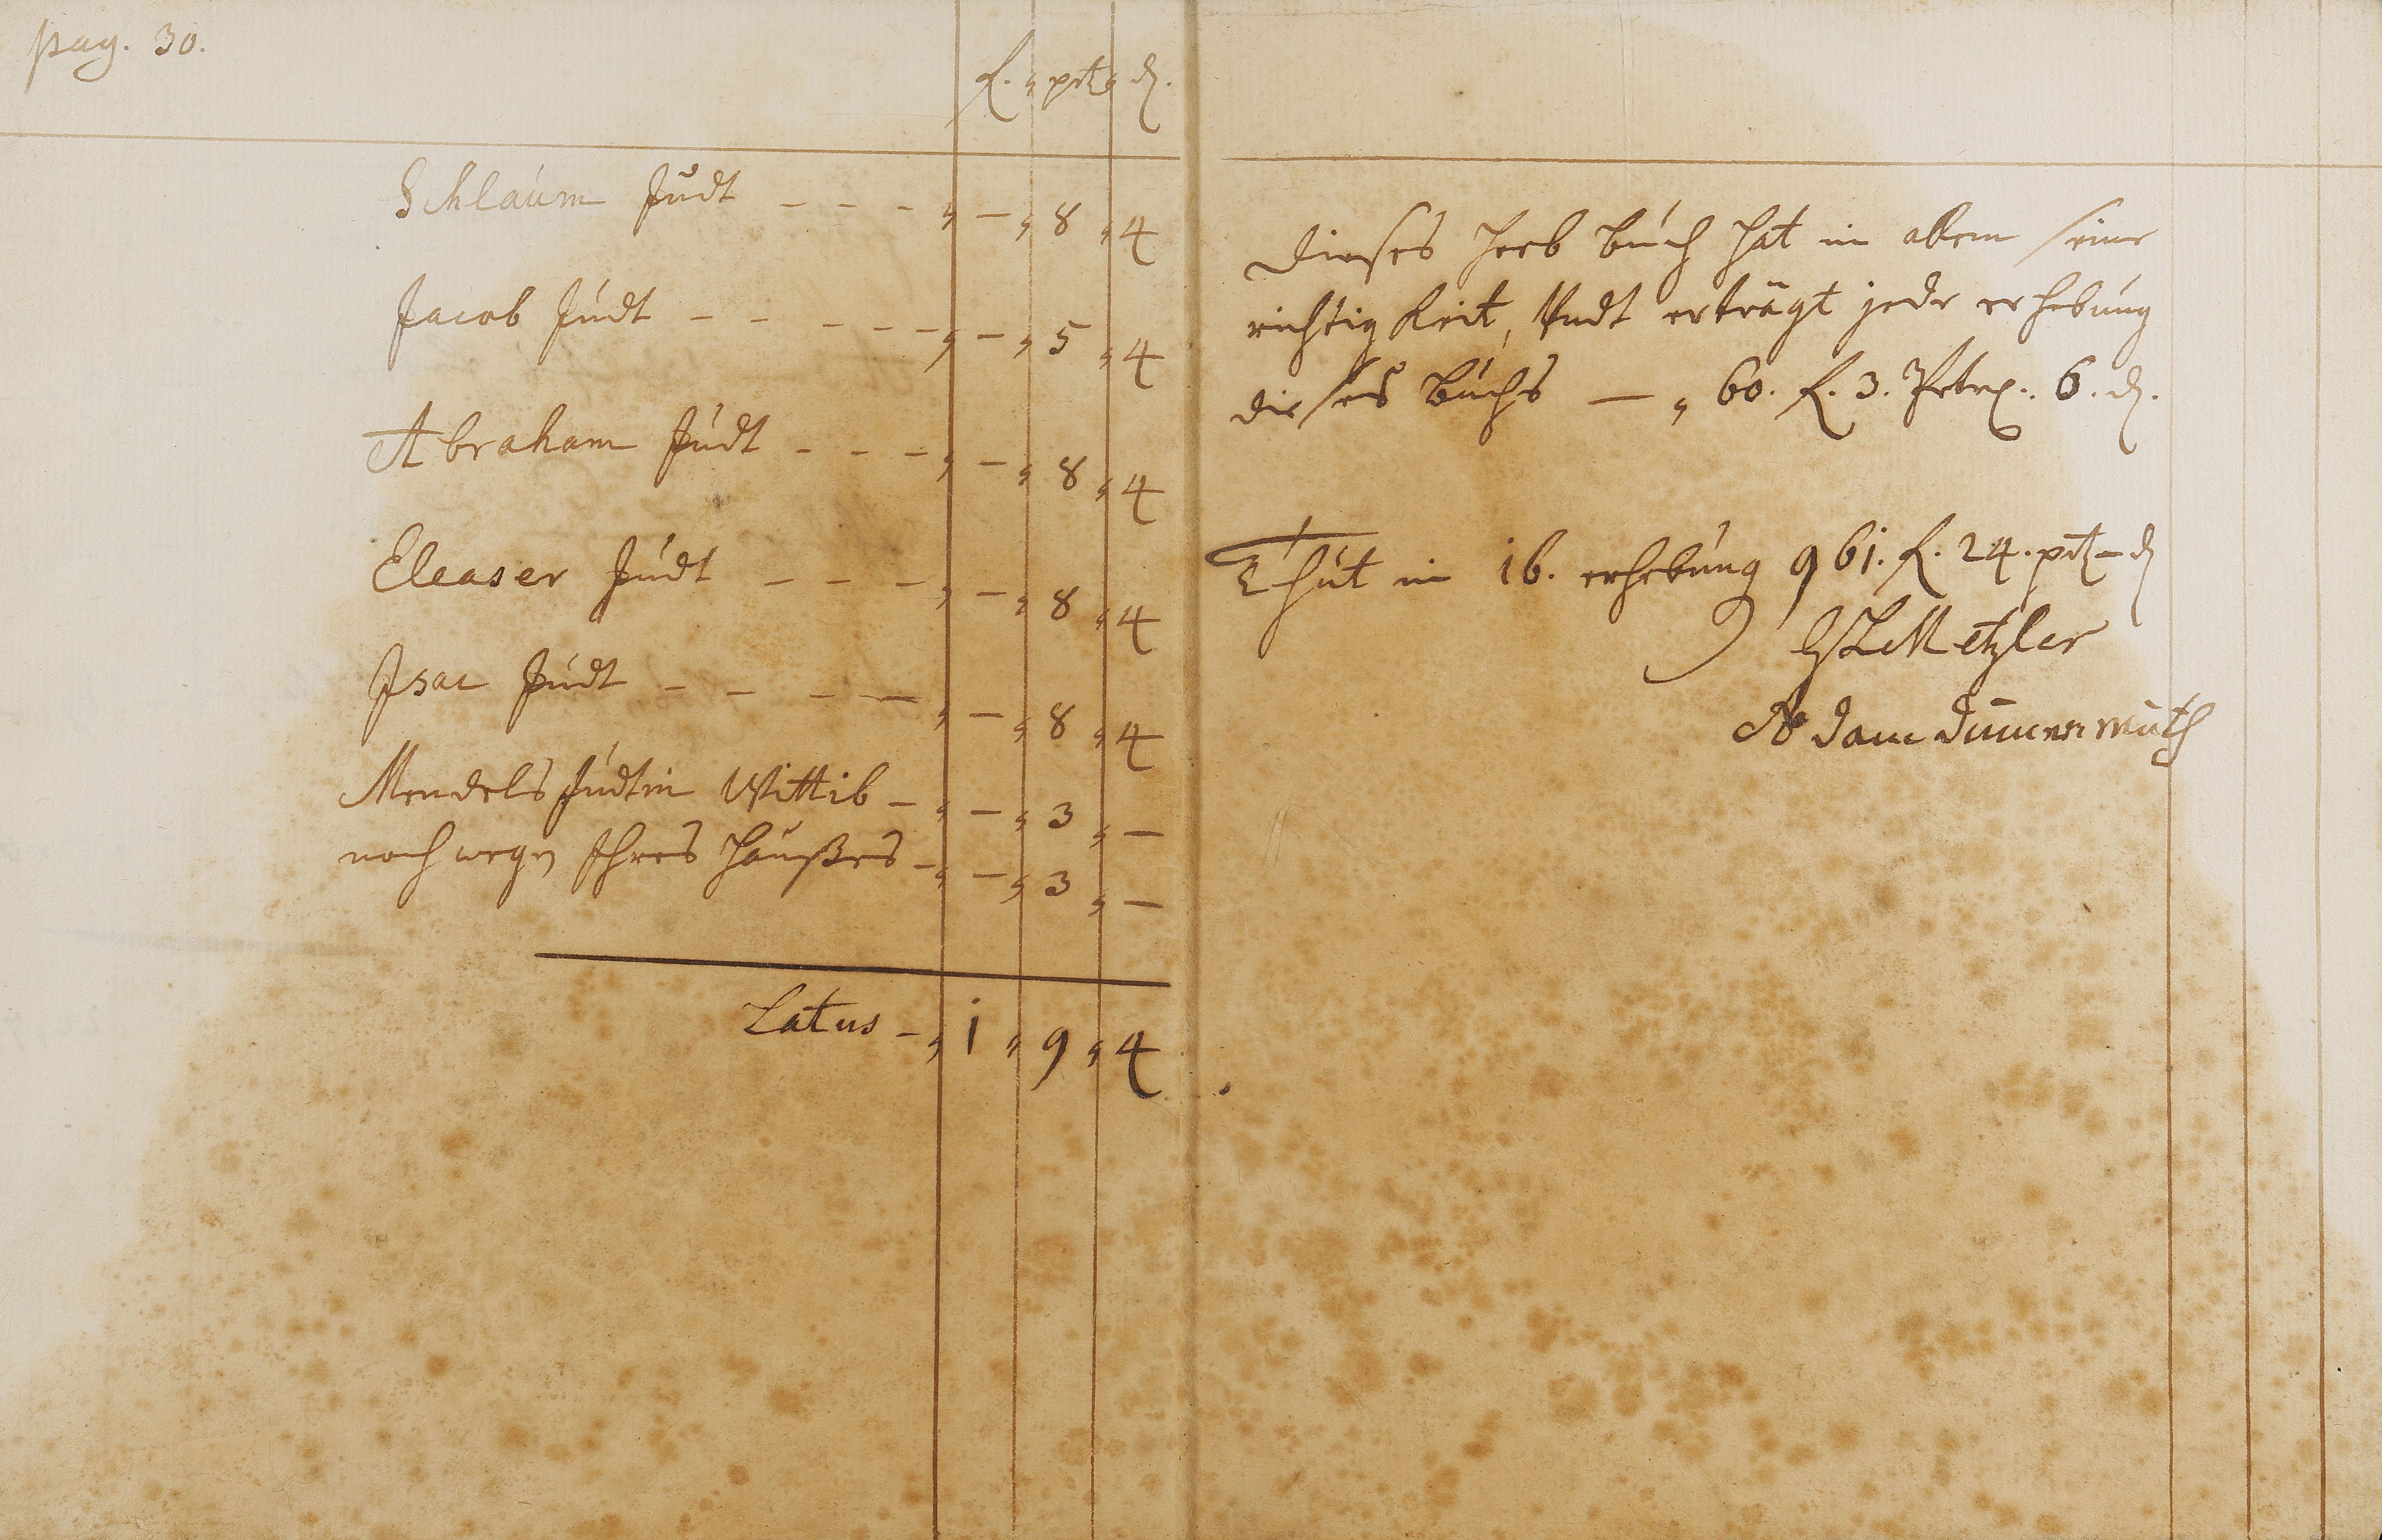 pag. 30.
f. „ ptz „ d.
Schlaum Judt - - - „ - „ 8 „ 4
Jacob Judt - - - - - „ - „ 5 „ 4
Abraham Judt - - - „ - „ 8 „ 4
Eleaser Judt - - - „ - „ 8 „ 4
Isac Judt - - - - „ - „ 8 „ 4
Mendels Judtin Wittib - „ - „ 3 „ -
noch wegen Ihres Haußes - „ - „ 3 „ -
Latus - „ 1 „ 9 „ 4
Dieses heeb buch hat in allem seine
richtigkeit, Undt erträgt jede erhebung
dieses buchs — „ 60. f. 3. 6. d.
Thut in 16. erhebung 961. f. 24. ptz - d
Metzler
Adam Dünnermuth